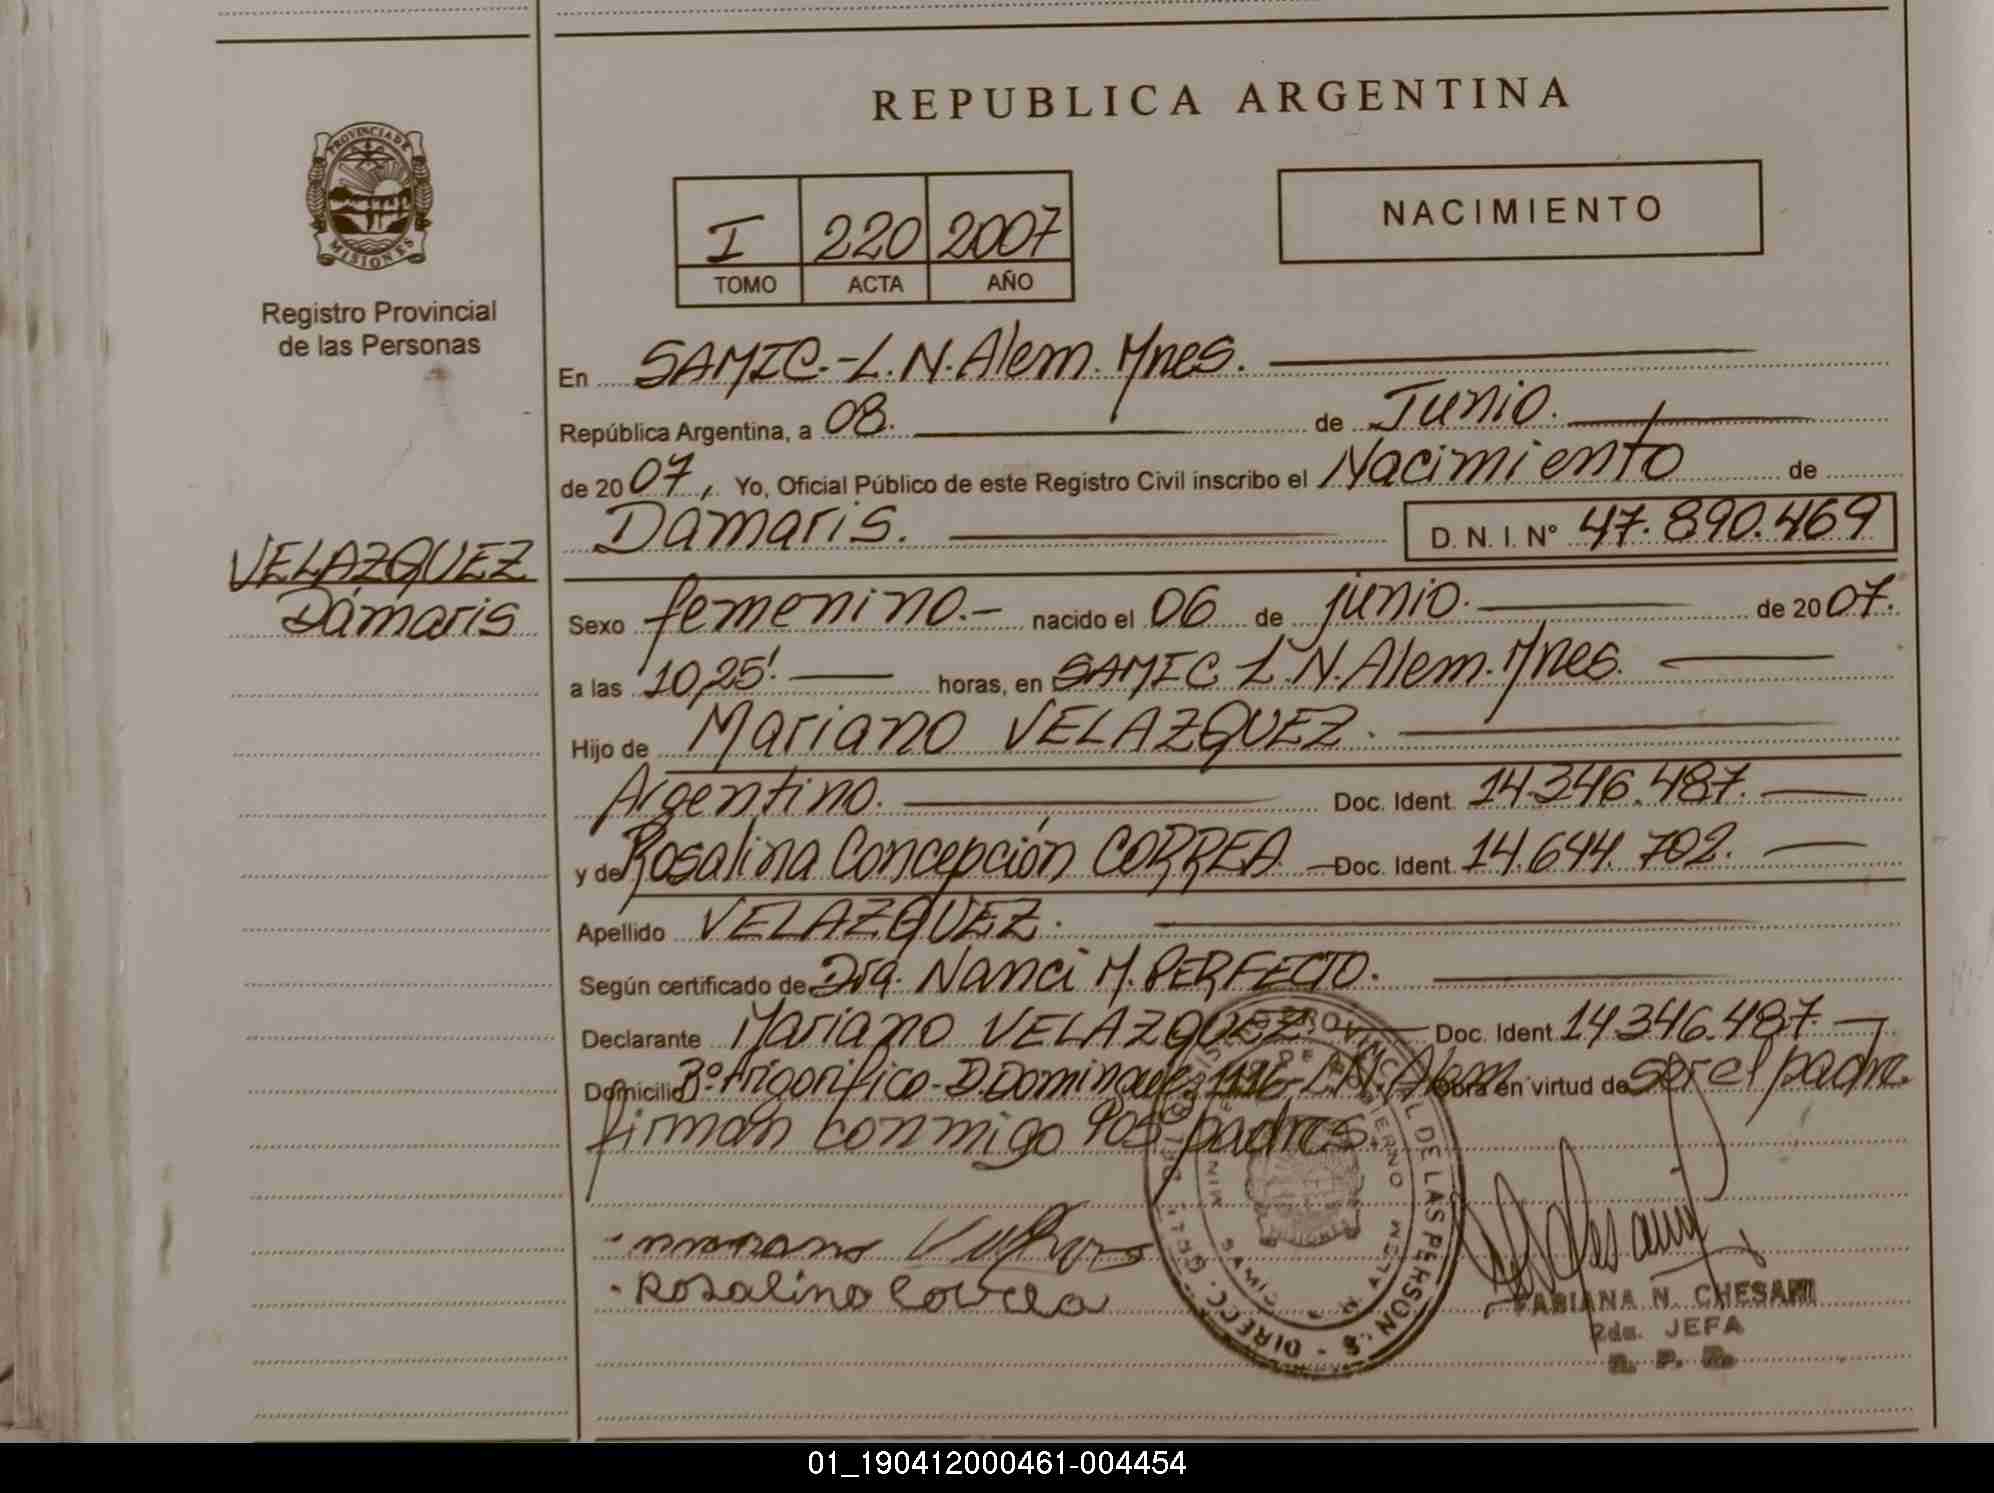 REPUBLICA ARGENTINA
PROVINCIA DE
MISIONES
Registro Provincial
de las Personas
I 220 2007
TOMO ACTA AÑO
NACIMIENTO
En SAMIC.-L.N.Alem.Mnes.
República Argentina, a 08. de Junio.
de 2007, Yo, Oficial Público de este Registro Civil inscribo el Nacimiento de
Damaris. D. N. I. Nº 47.890.469
VELAZQUEZ
Dámaris
Sexo femenino.- nacido el 06 de junio. de 2007.
a las 10,25! horas, en SAMIC L.N.Alem.Mnes.
Hijo de Mariano VELAZQUEZ.
Argentino. Doc. Ident. 14.346.487.
y de Rosalina Concepción CORREA. Doc. Ident. 14.644.702.
Apellido VELAZQUEZ.
Según certificado de Dra. Nanci M. PERFECTO.
Declarante Mariano VELAZQUEZ. Doc. Ident. 14.346.487.
Domicilio Bº.frigorifico-D.Dominguez 1116-L.N.Alem. Obra en virtud de ser el padre.
firman conmigo los padres.
Rosalina Correa
DIRECC. PROVINCIAL DE LAS PERSONAS
SAMIC
L. N. ALEM
MISIONES
FABIANA N. CHESANI
2da. JEFA
R. P. P.
01_190412000461-004454